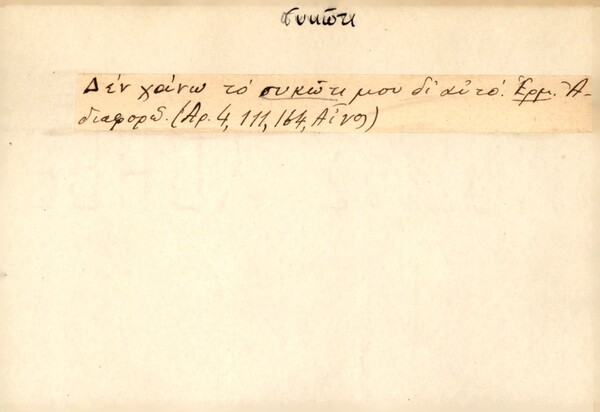 συκῶτι
Δέν χάνω τό συκῶτι μου δι' αὐτό. Ἑρμ. Ἀ-
διαφορῶ. (Αρ. 4, 111, 164, Αἶνος)